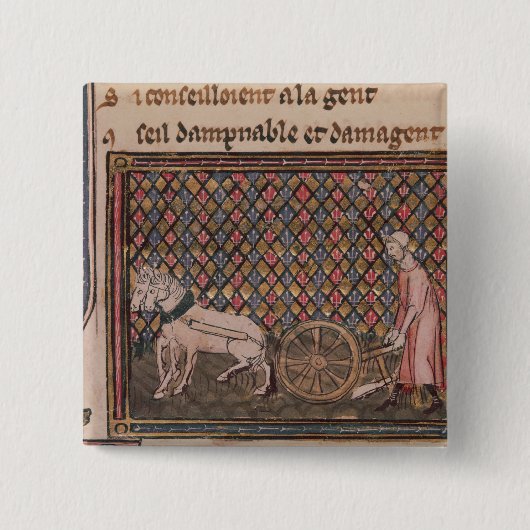 S i conseilloient a la gent
C seil dampnable et damagent